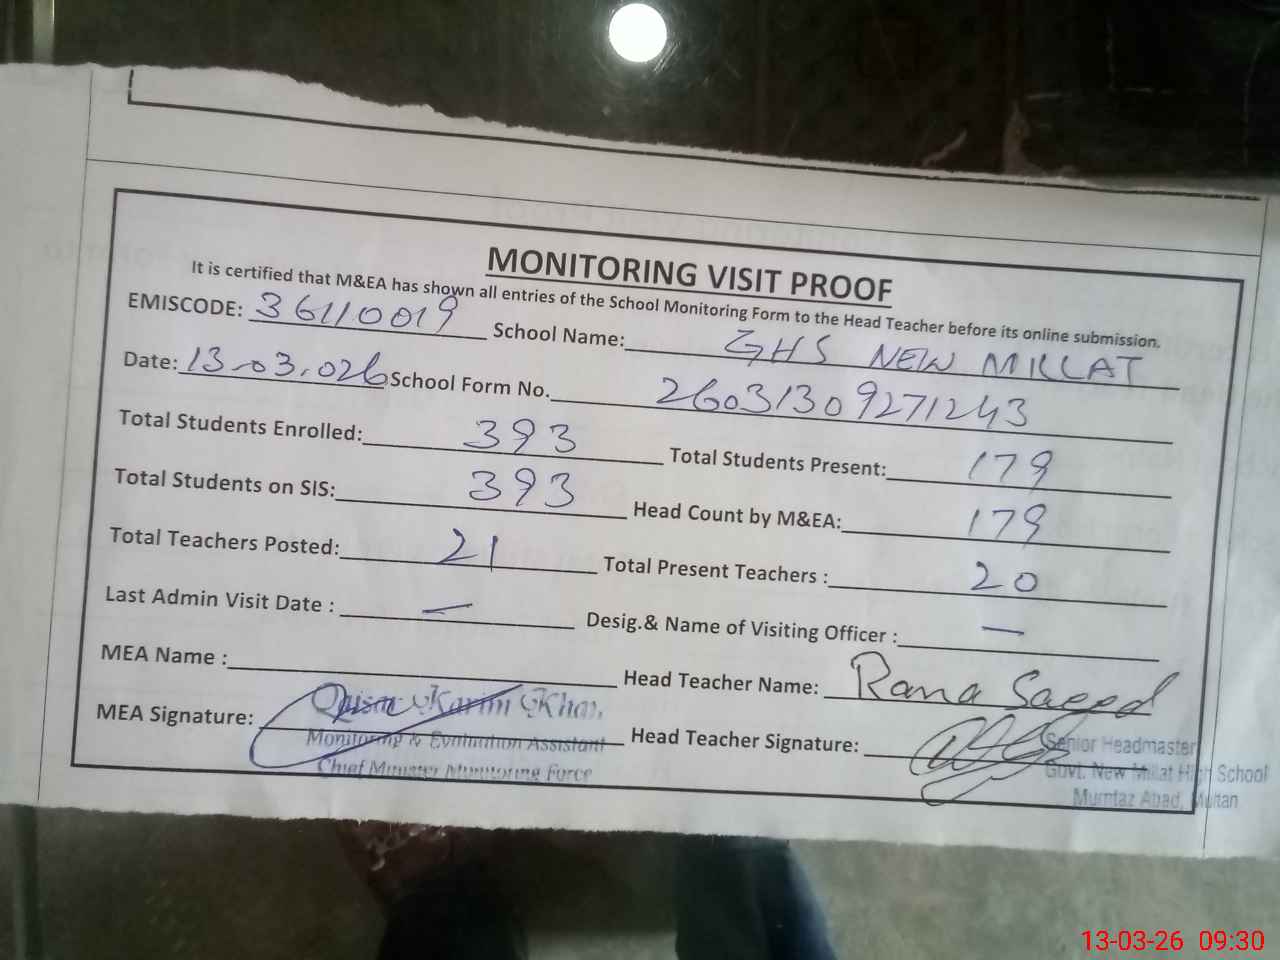 MONITORING VISIT PROOF
It is certified that M&EA has shown all entries of the School Monitoring Form to the Head Teacher before its online submission.
EMISCODE: 36110019 School Name: GHS NEW MILLAT
Date: 13-03.026 School Form No. 26031309271243
Total Students Enrolled: 393 Total Students Present: 179
Total Students on SIS: 393 Head Count by M&EA: 179
Total Teachers Posted: 21 Total Present Teachers : 20
Last Admin Visit Date : — Desig.& Name of Visiting Officer : —
MEA Name : Head Teacher Name: Rana Saeed
Karim Khan
MEA Signature: Head Teacher Signature:
Monitoring & Evaluation Assistant
Chief Minister Monitoring Force
Senior Headmaster
Govt. New Millat High School
Mumtaz Abad, Multan
13-03-26 09:30